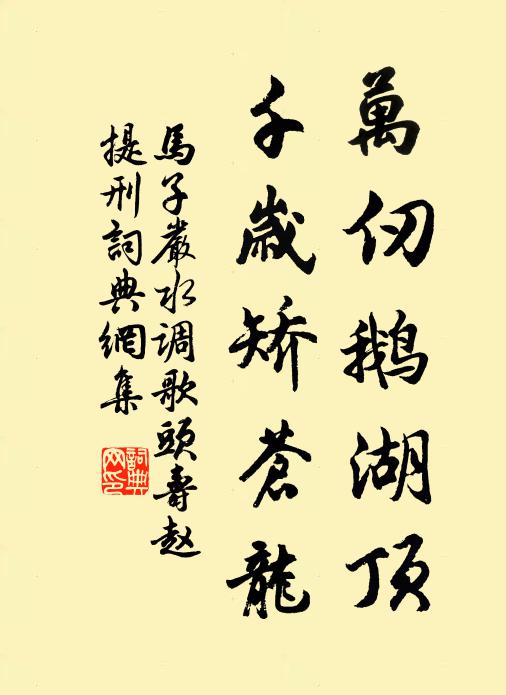 萬仞鹅湖顶
千歲矯蒼龍
馬子嚴水调歌頭壽赵
提刑詞典網集
詞典网印